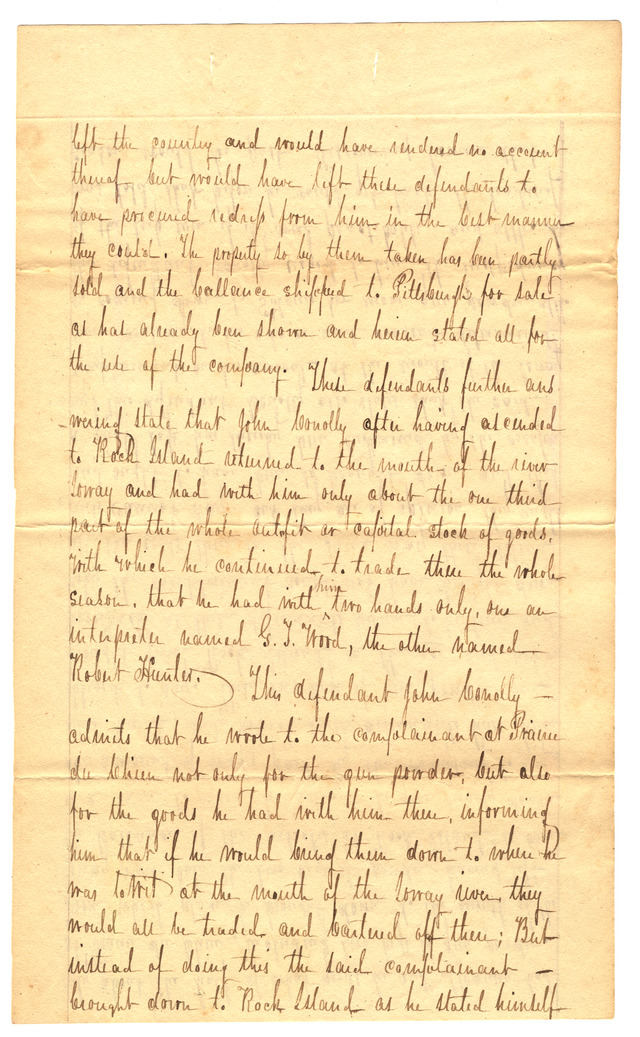 left the country and would have rendered no account
thereof but would have left these defendants to
have procured redress from him in the best manner
they could. The property so by them taken has been partly
sold and the ballance shipped to Pittsburgh for sale
as has already been shown and herein stated all for
the use of the company. These defendants further ans
wering state that John Conolly after having ascended
to Rock Island returned to the mouth of the river
Ioway and had with him only about the one third
part of the whole outfit or capital stock of goods,
with which he continued to trade there the whole
season. that he had with him two hands only, one an
interpreter named G. T. Wood, the other named
Robert Hunter. This defendant John Conolly —
admits that he wrote to the complainant at Prairie
du Chien not only for the gun powder, but also
for the goods he had with him there, informing
him that if he would bring them down to where he
was to wit at the mouth of the Ioway river, they
would all be traded and bartered off there; But
instead of doing this the said complainant —
brought down to Rock Island as he stated himself